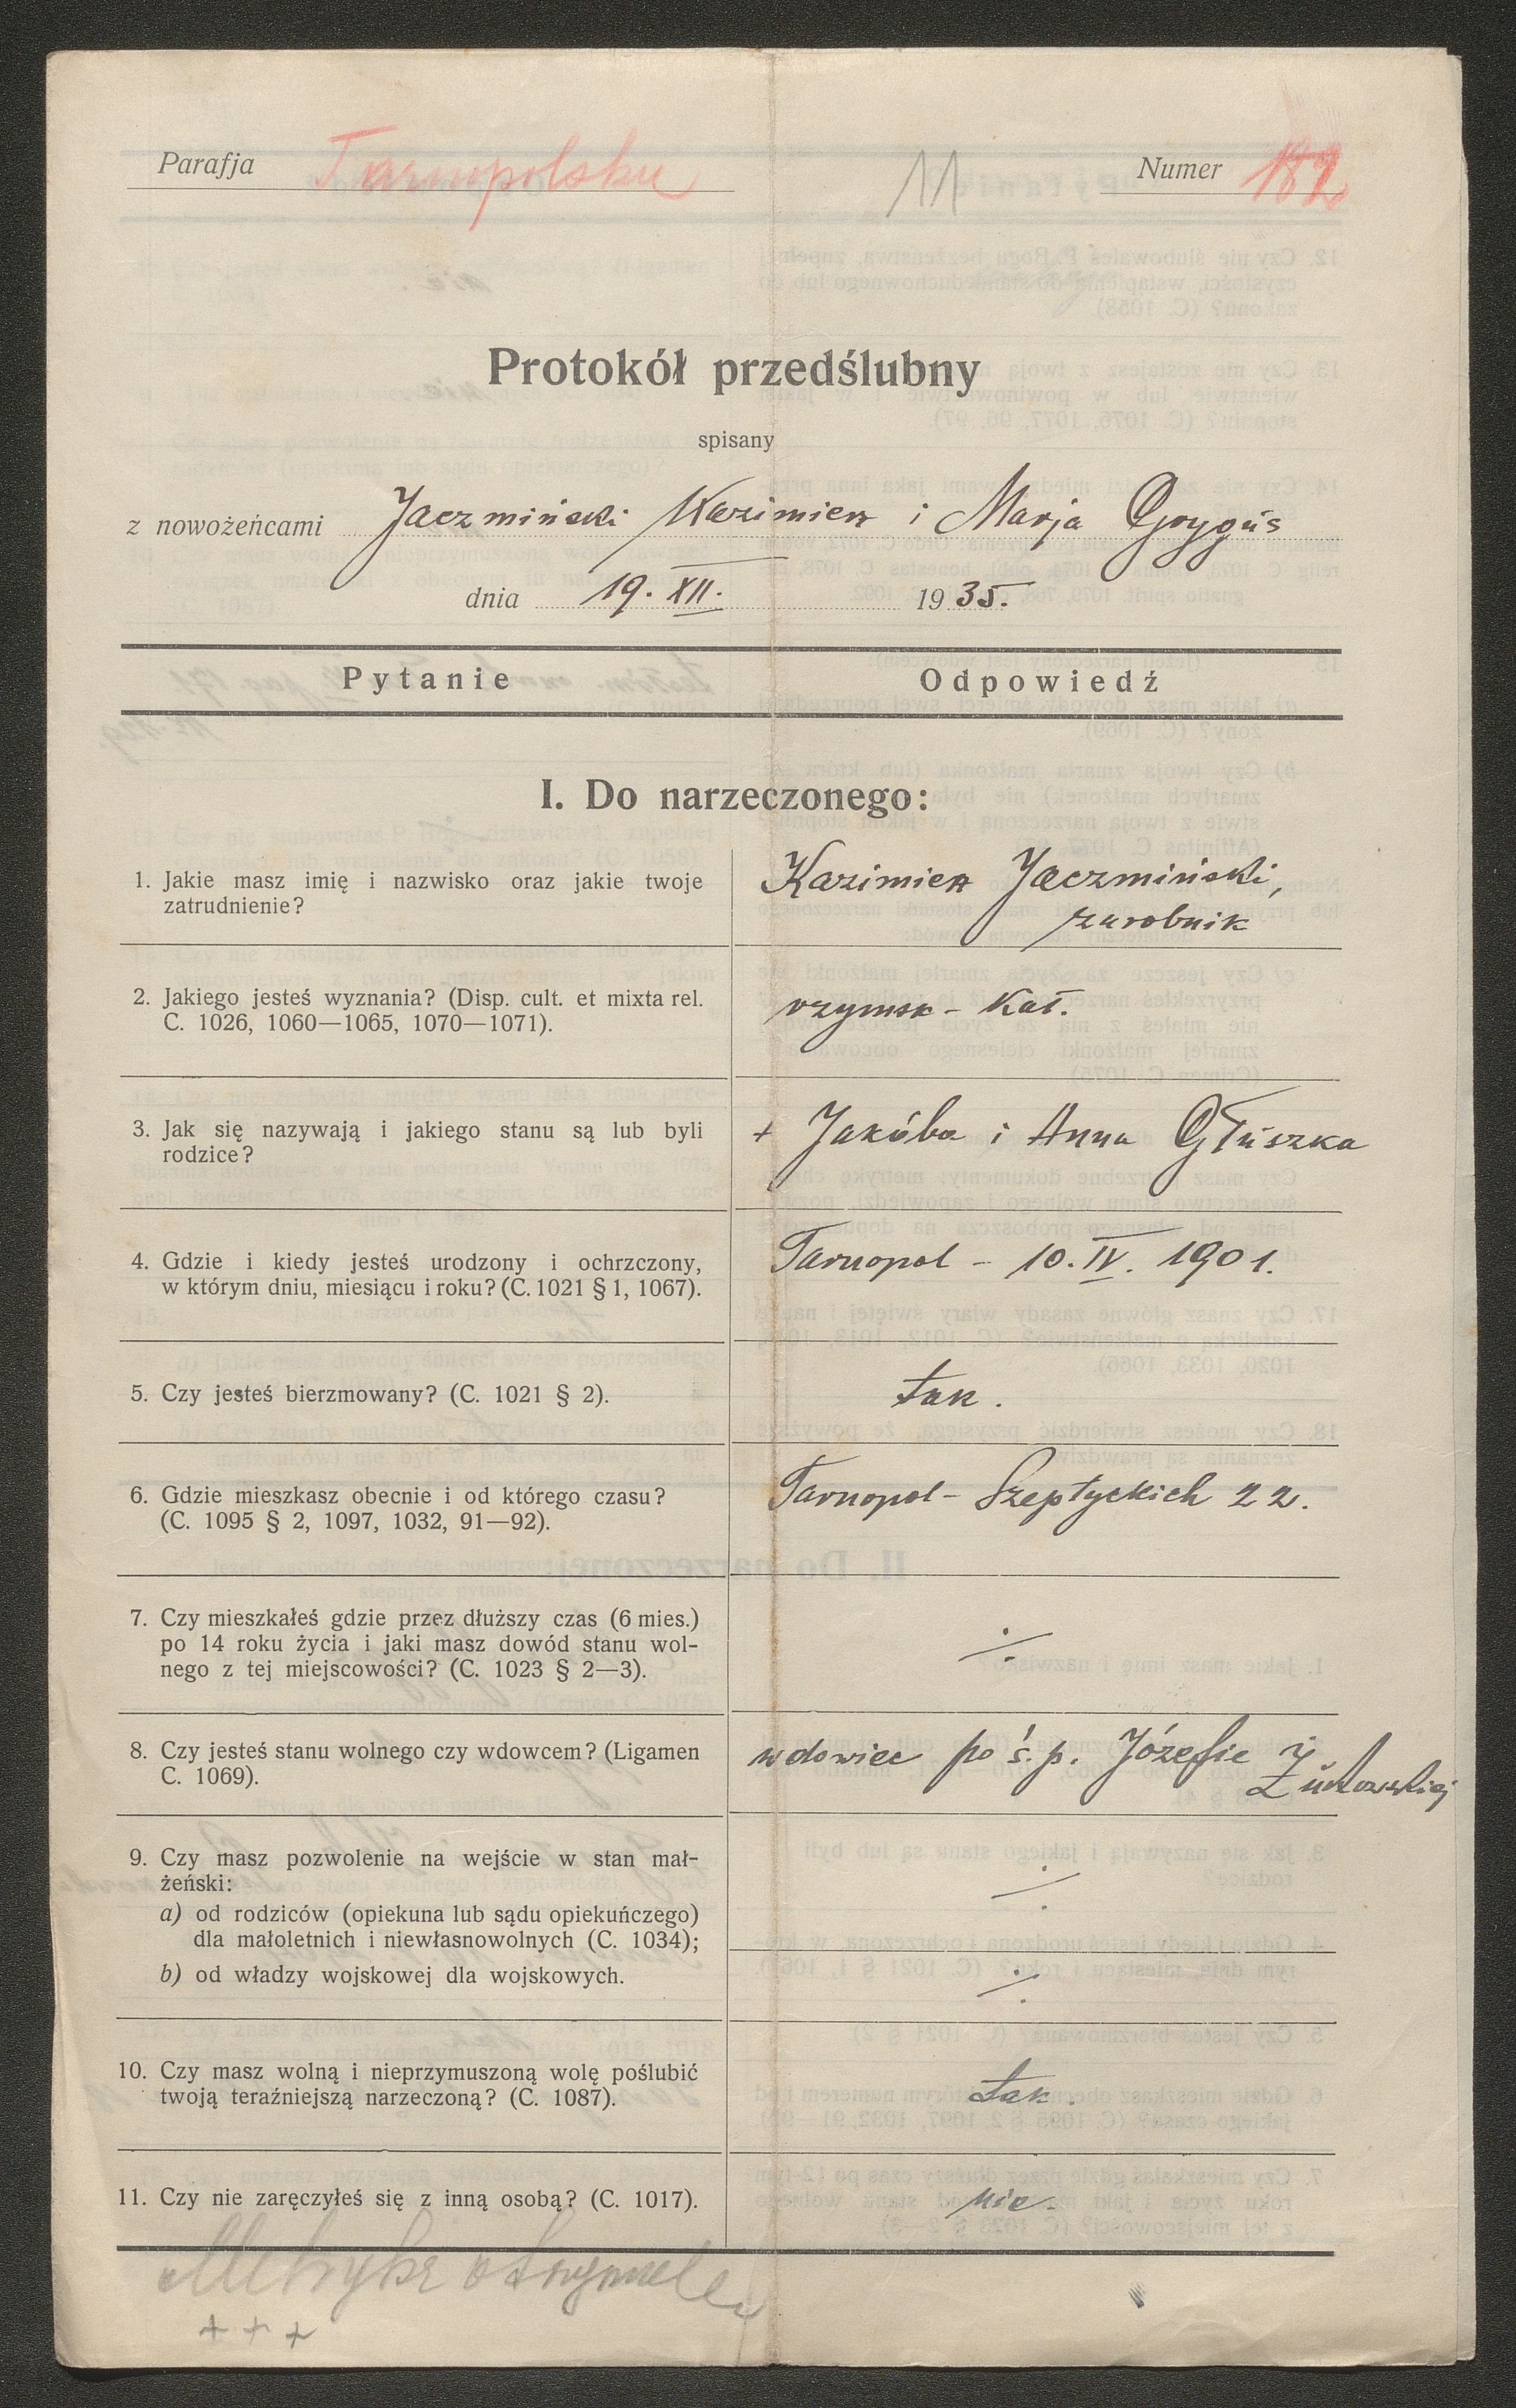 Parafja Tarnopolsku 11 Numer 182
Protokół przedślubny
spisany
z nowożeńcami Jaczmiński Kazimierz i Marja Gryguś
dnia 19. XII. 1935.
Pytanie Odpowiedź
I. Do narzeczonego:
1. Jakie masz imię i nazwisko oraz jakie twoje Kazimierz Jaczmiński,
zatrudnienie? zarobnik
2. Jakiego jesteś wyznania? (Disp. cult. et mixta rel. rzymsk - kat.
C. 1026, 1060—1065, 1070—1071).
3. Jak się nazywają i jakiego stanu są lub byli + Jakóba i Anna Głuszka
rodzice?
4. Gdzie i kiedy jesteś urodzony i ochrzczony, Tarnopol - 10. IV. 1901.
w którym dniu, miesiącu i roku? (C. 1021 § 1, 1067).
5. Czy jesteś bierzmowany? (C. 1021 § 2). tak.
6. Gdzie mieszkasz obecnie i od którego czasu? Tarnopol - Szeptyckich 22.
(C. 1095 § 2, 1097, 1032, 91—92).
7. Czy mieszkałeś gdzie przez dłuższy czas (6 mies.)
po 14 roku życia i jaki masz dowód stanu wol- ÷
nego z tej miejscowości? (C. 1023 § 2—3).
8. Czy jesteś stanu wolnego czy wdowcem? (Ligamen wdowiec po ś.p. Józefie
C. 1069). Żukowskiej
9. Czy masz pozwolenie na wejście w stan mał-
żeński: ÷
a) od rodziców (opiekuna lub sądu opiekuńczego)
dla małoletnich i niewłasnowolnych (C. 1034);
b) od władzy wojskowej dla wojskowych. ÷
10. Czy masz wolną i nieprzymuszoną wolę poślubić tak.
twoją teraźniejszą narzeczoną? (C. 1087).
11. Czy nie zaręczyłeś się z inną osobą? (C. 1017). nie.
Metrykę otrzymałem
+ + +